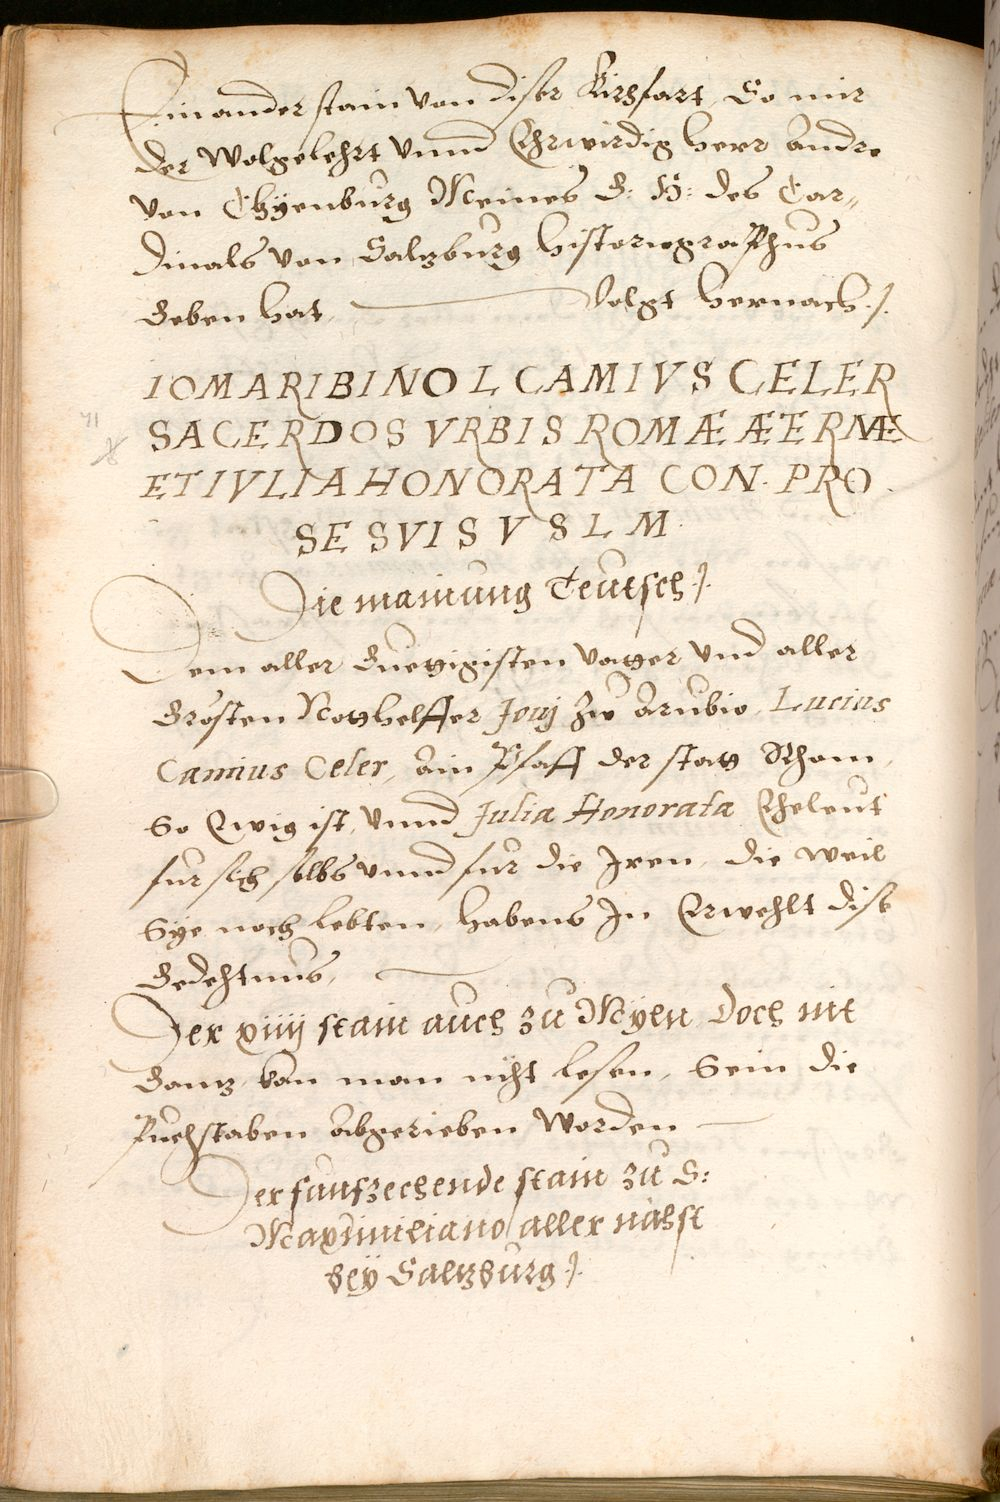 Ein ander stain von diser Kirchfart, So mir
der Wolgelehrt vnnd Ehrwirdig herr Andre
von Chÿenburg Meines G: H: des Car„
dinals von Saltzburg historiographus
Geben hat, Volgt hernach ./.
IOMARIBINO L CAMIVS CELER
SACERDOS VRBIS ROMÆ ÆTERNÆ
ET IVLIA HONORATA CON. PRO.
SE SVIS V S L M.
71
Die mainung Teutsch ./.
Dem aller Guettigisten vatter vnd aller
Grösten Notthelffer Joui zu Arubio, Lucius
Camius Celer, ain Pfaff der statt Rhom,
So Ewig ist, vnnd Julia Honorata Eheleut
fur sich selbs vnnd fur die Iren, die weil
Sÿe noch lebten, habens In Erwehlt dise
Gedechtnus,
Der xiiij stain auch zu Mÿen doch nit
Gantz, kan man nicht lesen, Sein die
Puechstaben abgerieben worden
Der funfzechende stain zu S:
Maximiliano aller nähst
beÿ Saltzburg ./.